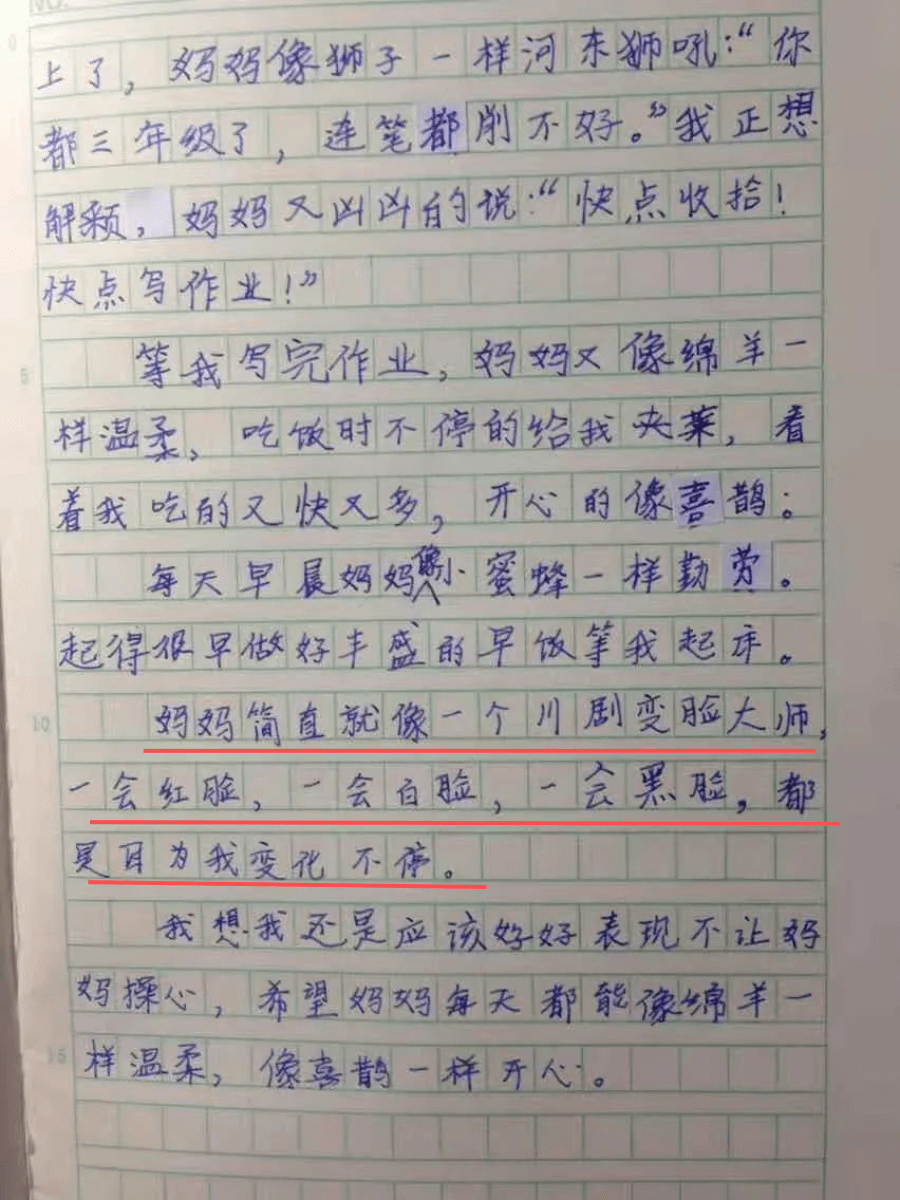 NO.
上了，妈妈像狮子一样河东狮吼：“你
都三年级了，连笔都削不好。”我正想
解颖，妈妈又凶凶的说：“快点收拾！
快点写作业！”
5
等我写完作业，妈妈又像绵羊一
样温柔，吃饭时不停的给我夹菜，看
着我吃的又快又多，开心的像喜鹊。
每天早晨妈妈像小蜜蜂一样勤劳。
起得很早做好丰盛的早饭等我起床。
10
妈妈简直就像一个川剧变脸大师，
一会红脸，一会白脸，一会黑脸，都
是因为我变化不停。
我想我还是应该好好表现不让妈
妈操心，希望妈妈每天都能像绵羊一
15
样温柔，像喜鹊一样开心。